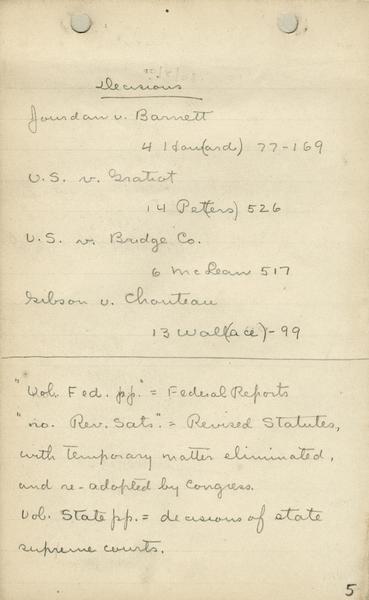 Decisions
Jourdan v. Barrett
4 How(ard) 77-169
U.S. v. Gratiot
14 Pet(ers) 526
U.S. v. Bridge Co.
6 McLean 517
Gibson v. Chouteau
13 Wall(ace) - 99
"Vol. Fed. pp." = Federal Reports
"no. Rev. Sats". = Revised Statutes,
with temporary matter eliminated,
and re-adopted by Congress.
Vol. State pp. = decisions of state
supreme courts.
5